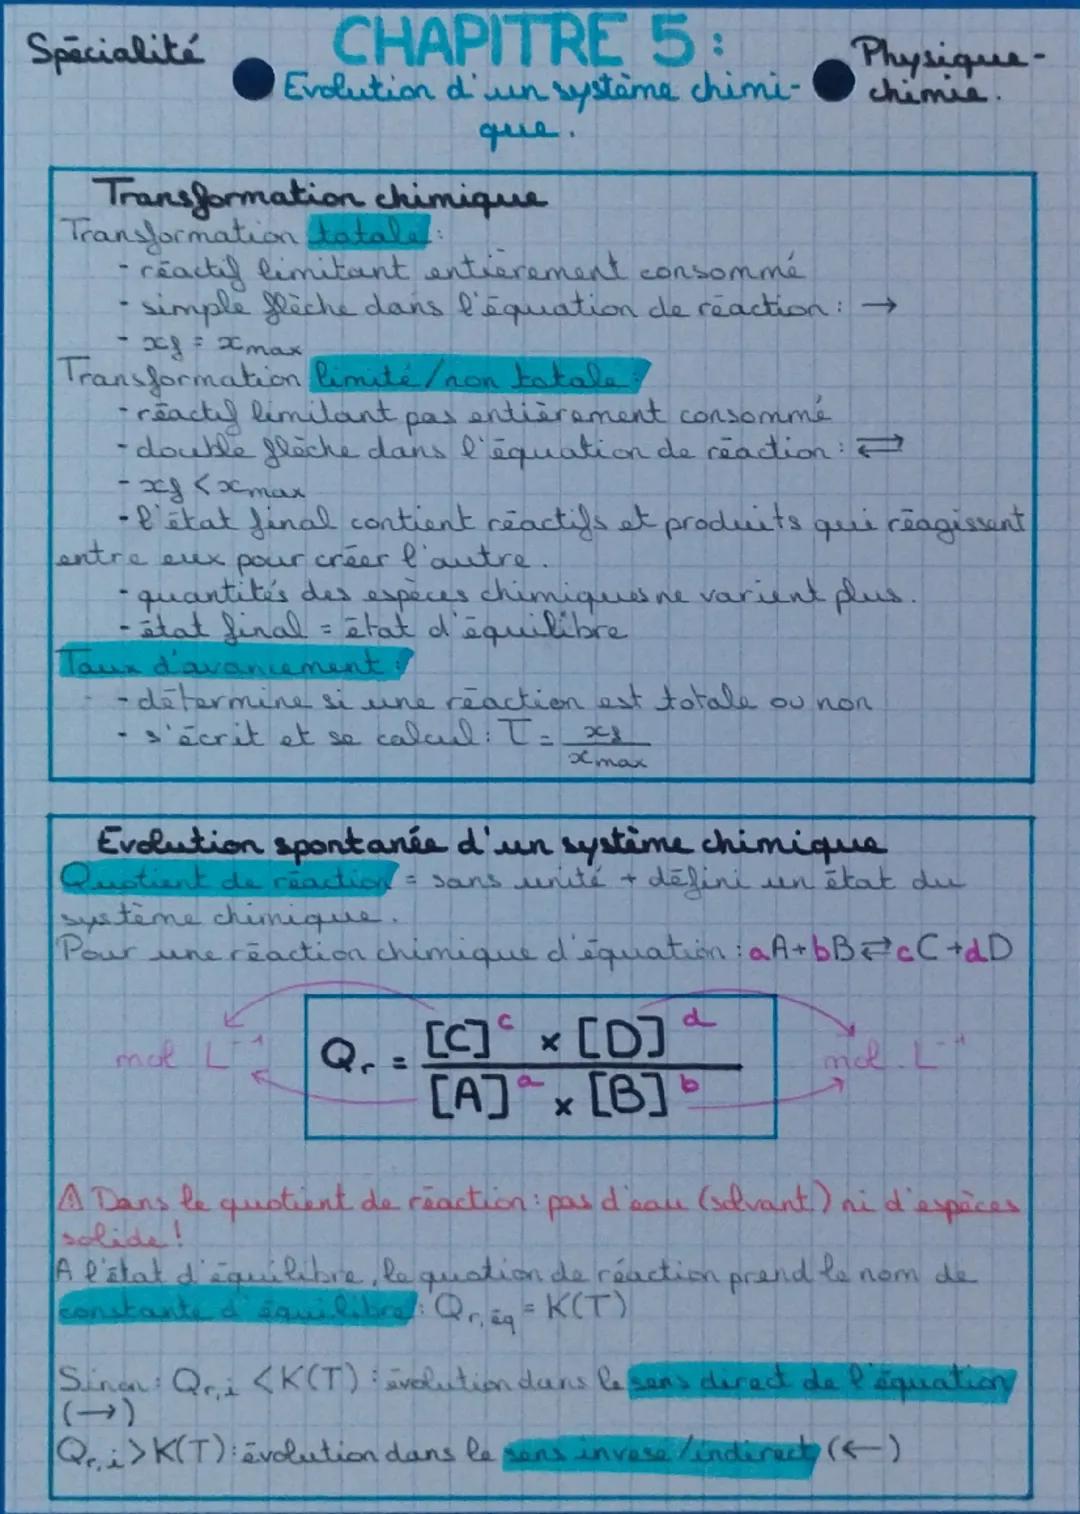 Spécialité
CHAPITRE 5 :
Physique-
chimie.
Evolution d'un système chimi-
que.
Transformation chimique
Transformation totale :
- réactif limitant entièrement consommé
- simple flèche dans l'équation de réaction : →
- xf = xmax
Transformation limité/non totale :
- réactif limitant pas entièrement consommé
- double flèche dans l'équation de réaction : ⇄
- xf < xmax
- l'état final contient réactifs et produits qui réagissent
entre eux pour créer l'autre.
- quantités des espèces chimiques ne varient plus.
- état final = état d'équilibre
Taux d'avancement :
- détermine si une réaction est totale ou non
- s'écrit et se calcul : T = xf / xmax
Evolution spontanée d'un système chimique
Quotient de réaction = sans unité + défini un état du
système chimique.
Pour une réaction chimique d'équation : aA + bB ⇄ cC + dD
mol L⁻¹
Qr = [C]^c × [D]^d / [A]^a × [B]^b
mol. L⁻¹
⚠ Dans le quotient de réaction : pas d'eau (solvant) ni d'espèces
solide !
A l'état d'équilibre, le quotion de réaction prend le nom de
constante d'équilibre : Qr,éq = K(T)
Sinon : Qr,i < K(T) : évolution dans le sens direct de l'équation
(→)
Qr,i > K(T) : évolution dans le sens inverse/indirect (←)